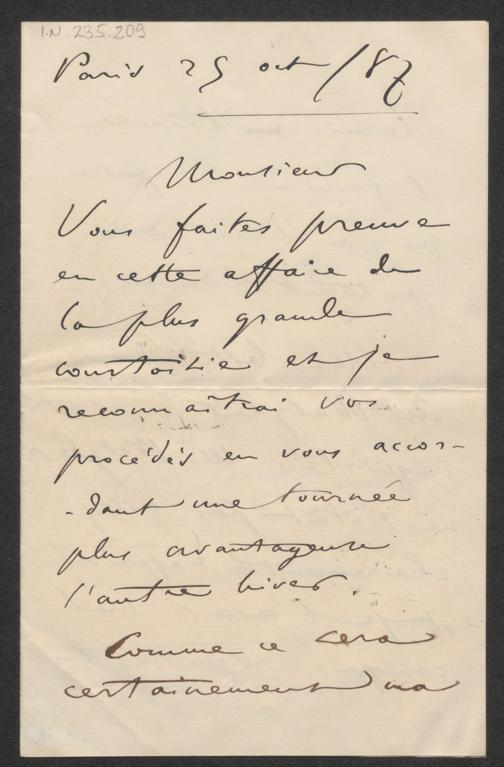 I.N. 235.209
Paris 25 oct/87
Monsieur
Vous faites preuve
en cette affaire de
la plus grande
courtoisie et je
reconnaitrai vos
procédés en vous accor-
-dant une tournée
plus avantageuse
l'autre hiver.
Comme ce sera
certainement ma